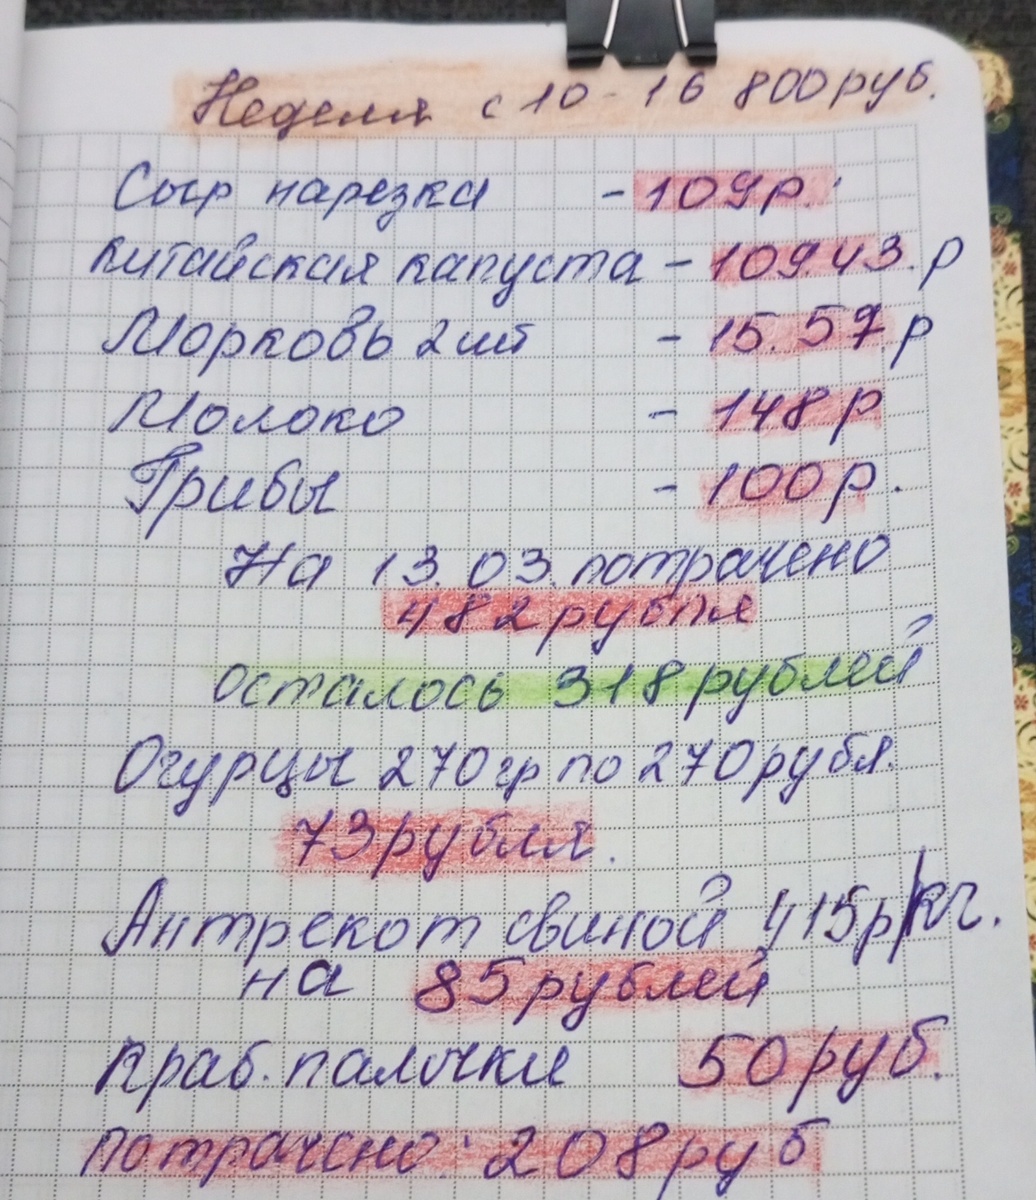 Неделя с 10-16 800 руб.
Сыр нарезка - 109р.
Китайская капуста - 109.43.р
Морковь 2шт - 15.57.р
Молоко - 148р
Грибы - 100р.
На 13.03.потрачено
482 рубля
Осталось 318 рублей
Огурцы 270гр по 270рубл.
73 рубля.
Антрекот свиной 415р/кг.
на 85 рублей
Краб.палочки 50 руб.
Потрачено: 208 руб